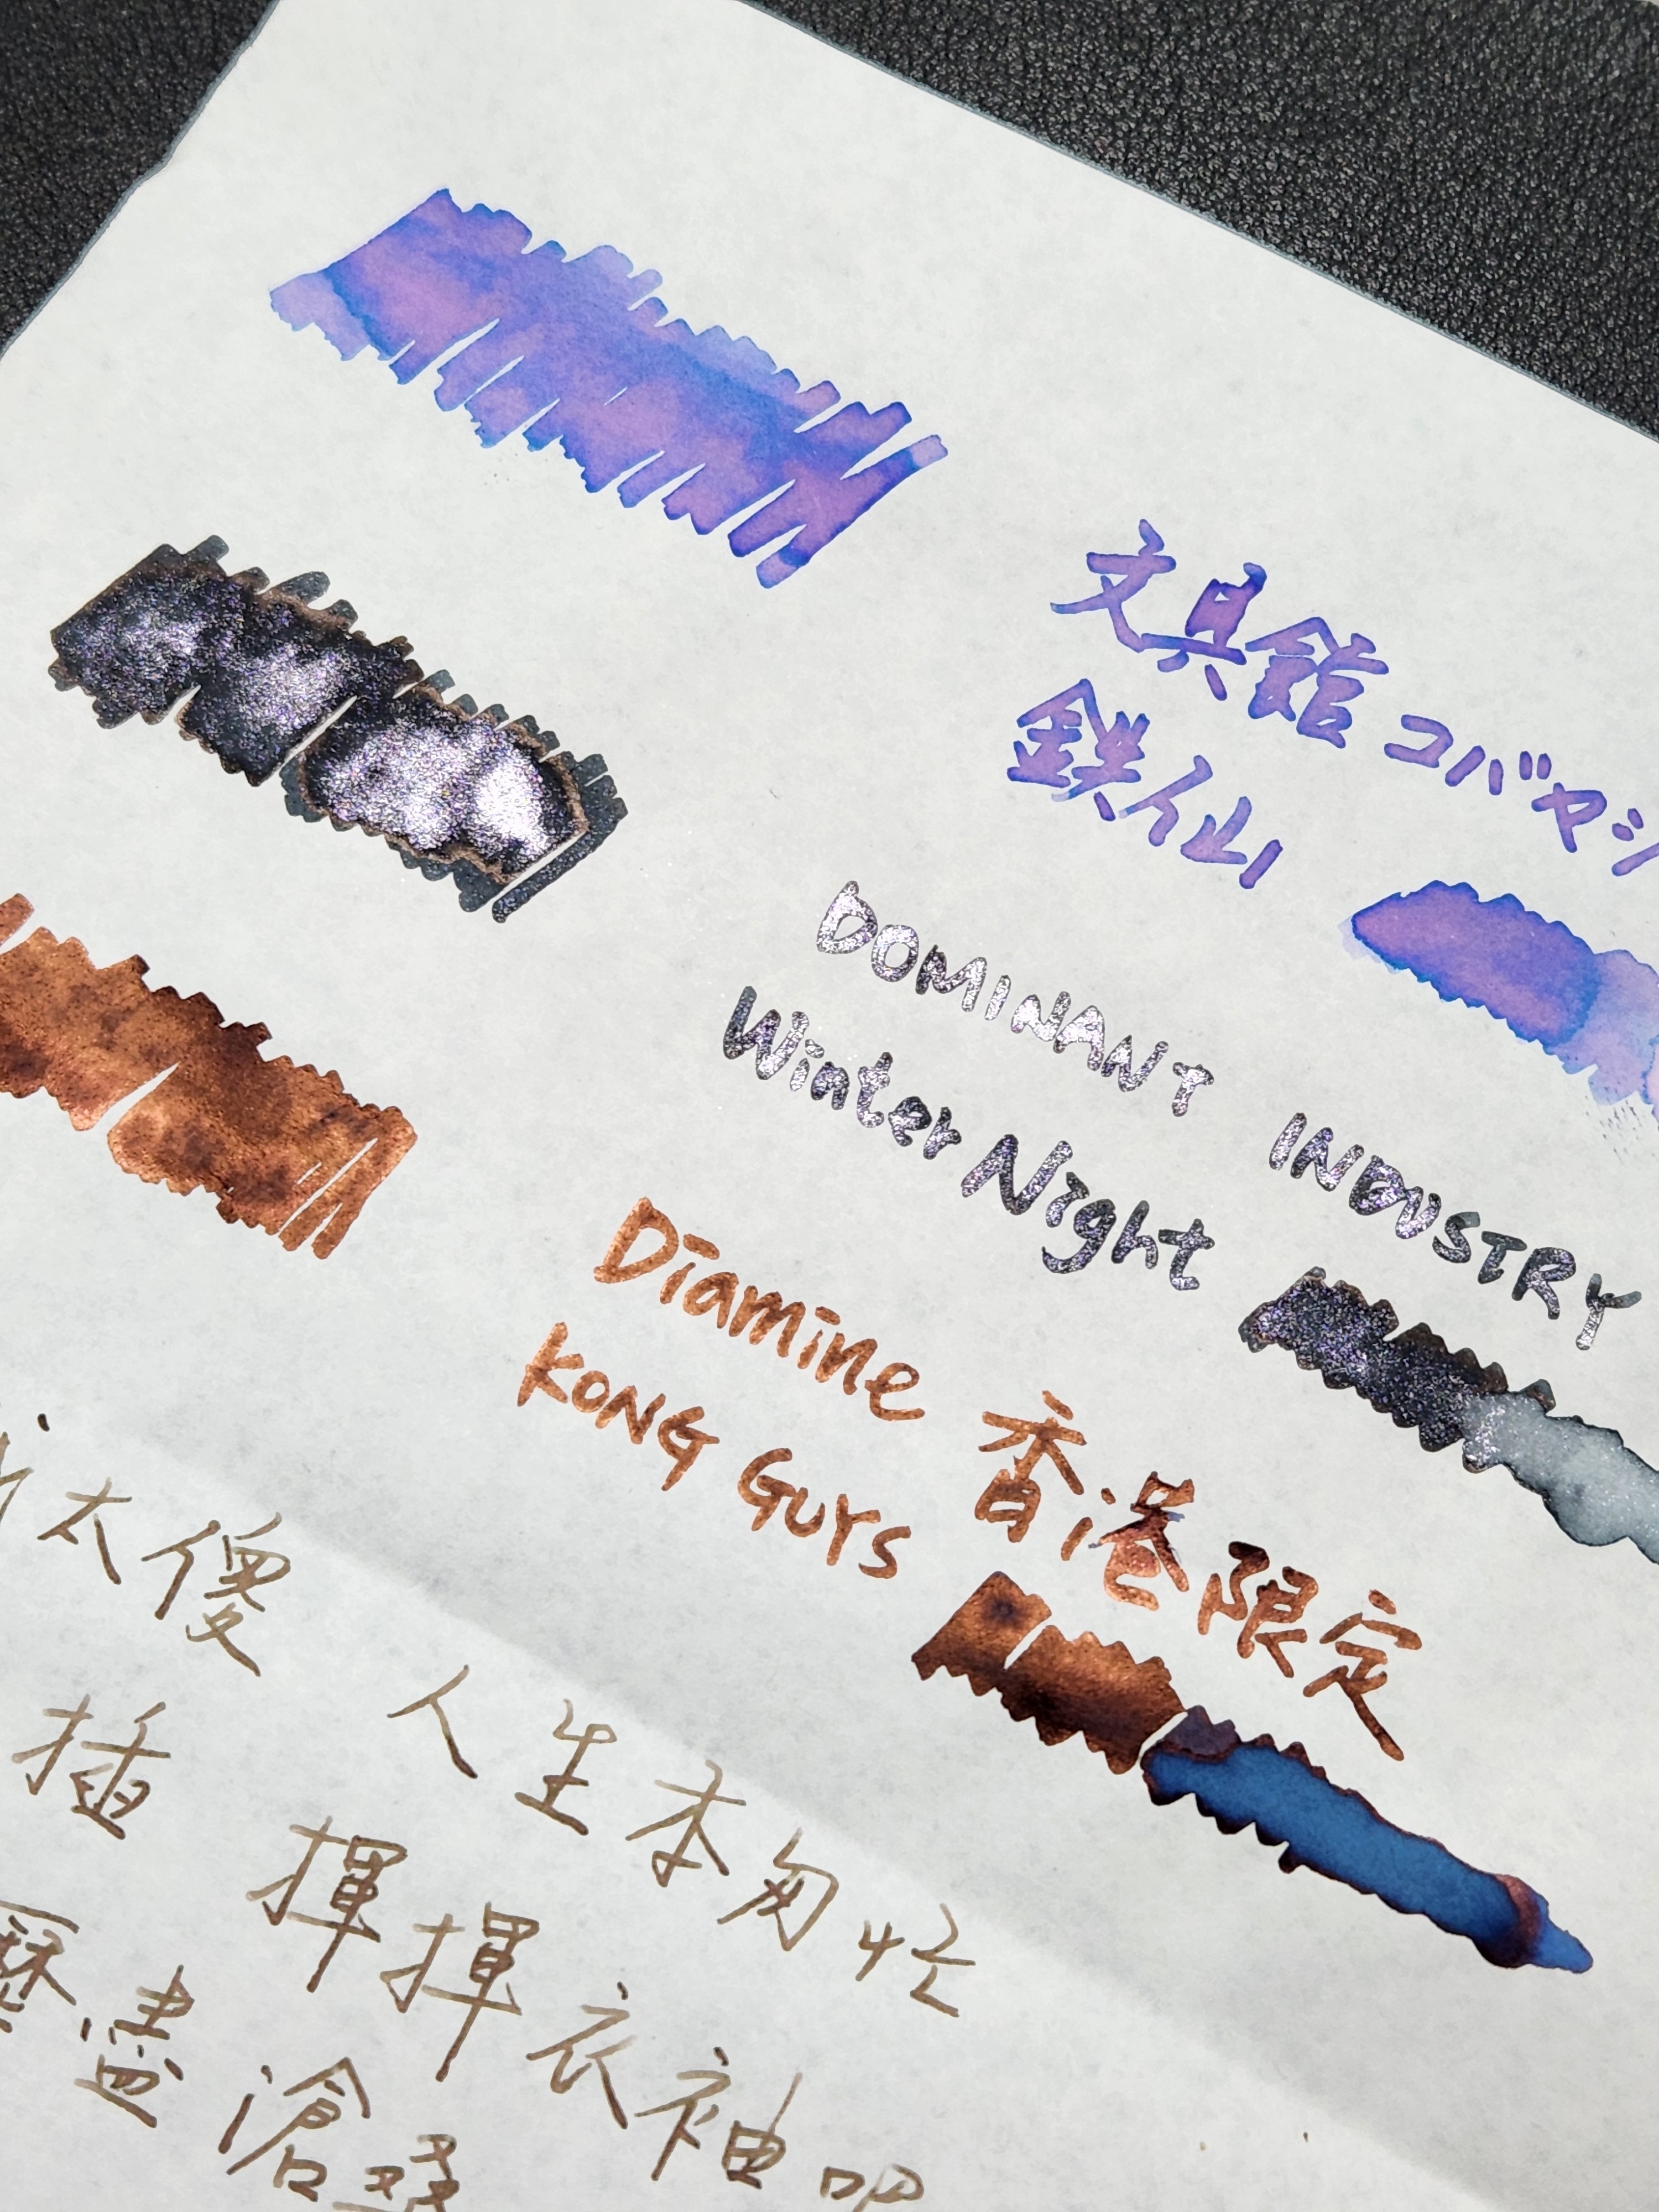 文具館コバヤシ
鉄仙
DOMINANT INDUSTRY
Winter Night
Diamine 香港限定
KONG GUYS
太傻 人生本匆忙
插 揮揮衣袖吧
歷盡滄桑